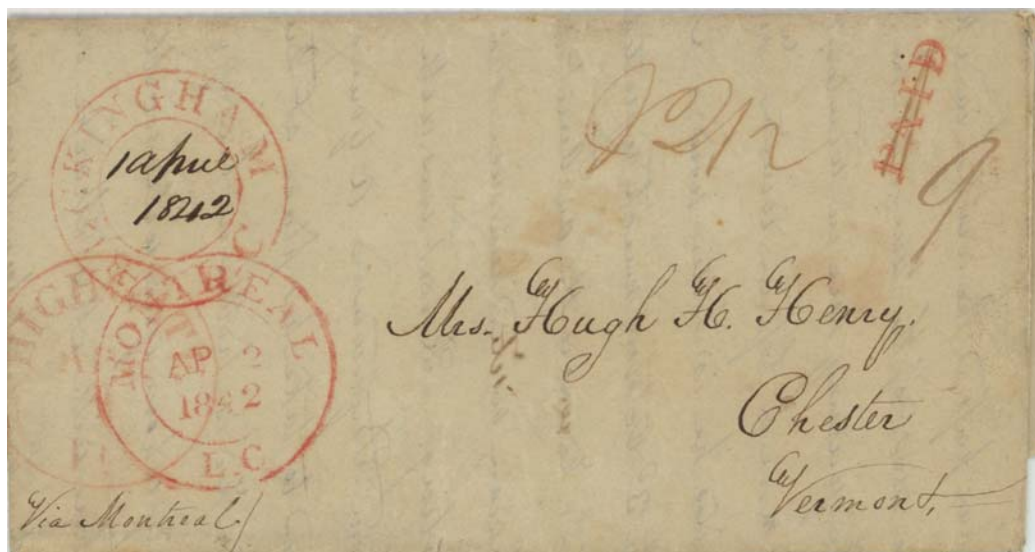 BUCKINGHAM
1 April
1842
C
PAID
9
HIGHGATE
MONTREAL
AP 2
1842
L.C
Mrs. Hugh H. Henry.
Chester
Vermont,
Via Montreal